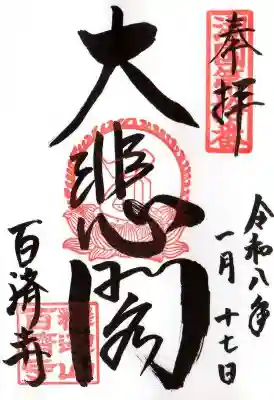 奉拝
令和八年
一月十七日
大悲閣
百済寺